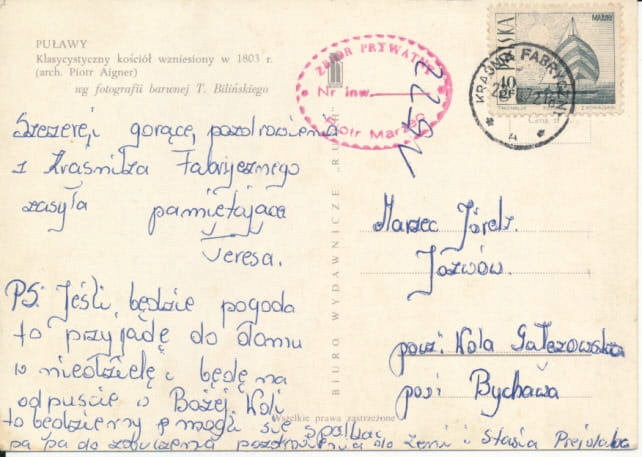 PUŁAWY
Klasycystyczny kościół wzniesiony w 1803 r.
(arch. Piotr Aigner)
wg fotografii barwnej T. Bilińskiego
Szczere i gorące pozdrowienia
z Kraśnika Fabrycznego
zasyła pamiętająca
Teresa.
PS: Jeśli będzie pogoda
to przyjadę do domu
w niedzielę i będę na
odpuście w Bożej Woli
to będziemy mogli się spotkać
pa pa do zobaczenia pozdrowienia do Żeni i Stasia
BIURO WYDAWNICZE „RUCH"
ZBIÓR PRYWATNY
Nr inw.
Piotr Marzec
POLSKA
40 gr
KRAŚNIK FABRYCZNY
A
Cena zł
Marzec Józef
Józwów.
pocz: Wola Gałęzowska
pow: Bychawa
Wszelkie prawa zastrzeżone